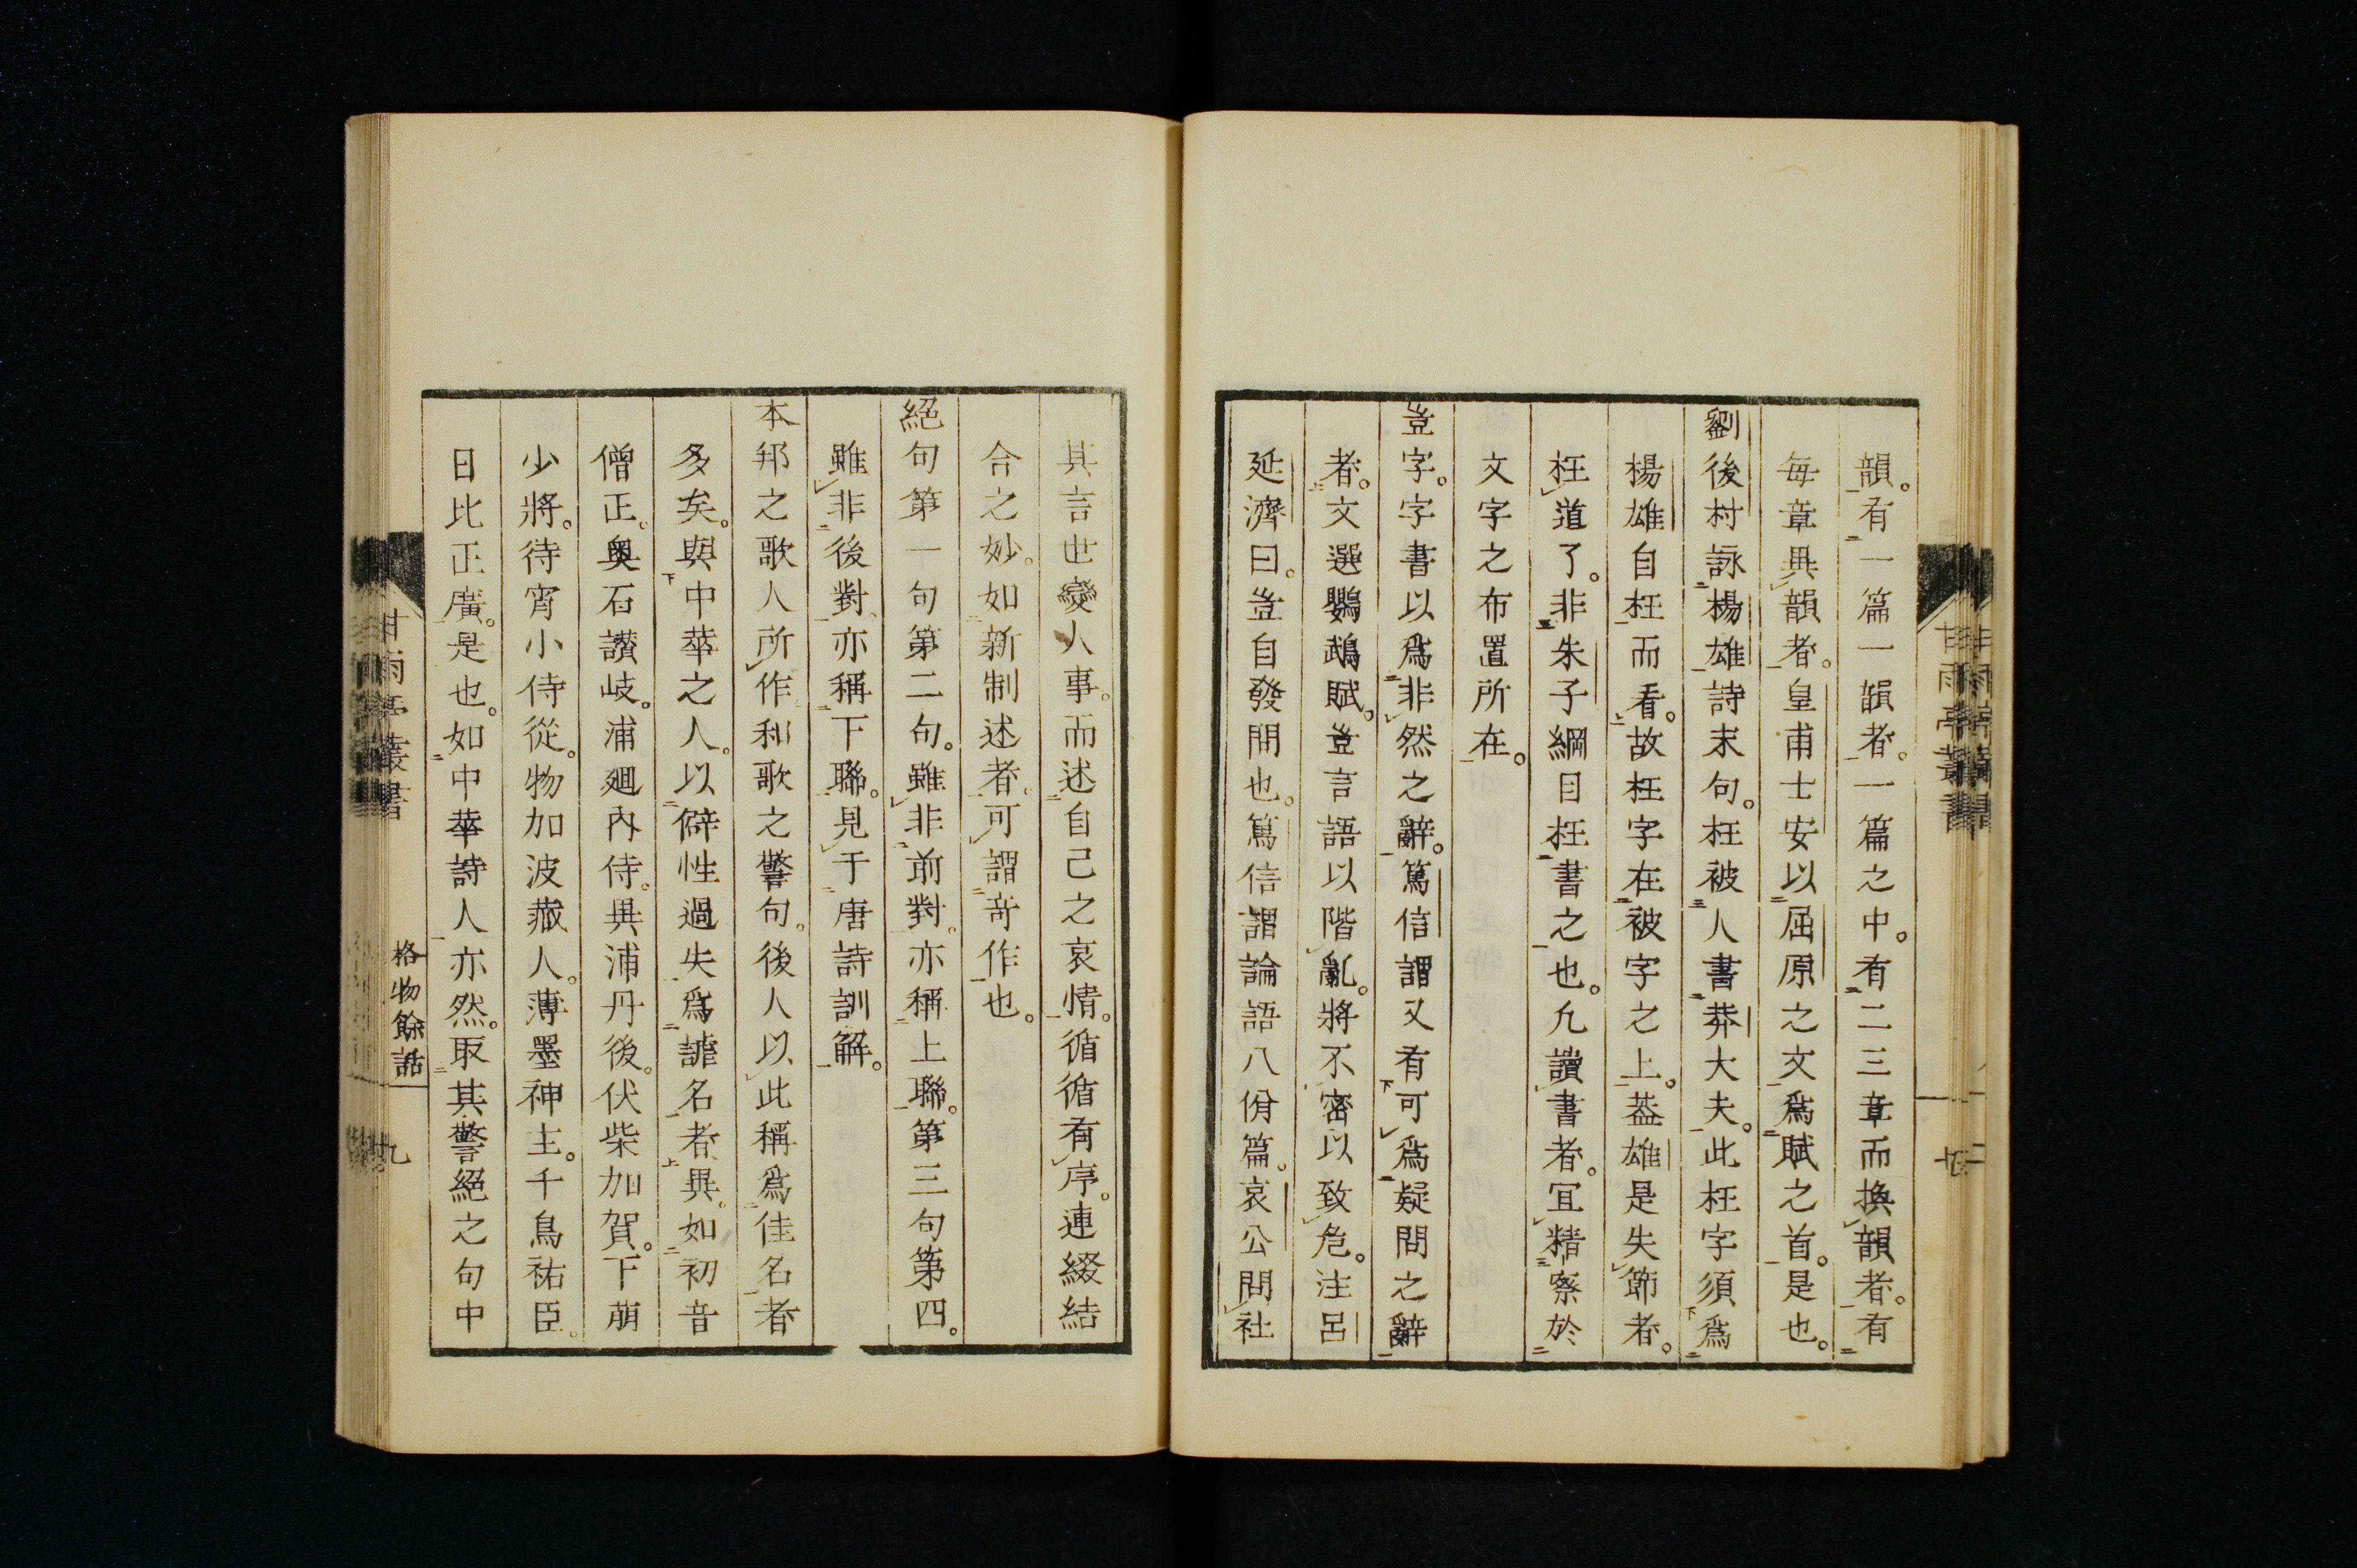 韻。有一篇一韻者。一篇之中。有二三章而換韻者。有
每章異韻者。皇甫士安以屈原之文爲賦之首。是也。
劉後村詠楊雄詩末句。枉被人書莽大夫。此枉字須爲
楊雄自枉而看。故枉字在被字之上。葢雄是失節者。
枉道了。非朱子綱目枉書之也。凢讀書者。冝精察於
文字之布置所在。
豈字。字書以爲非然之辭。篤信謂又有可爲疑問之辭
者。文選鸚鵡賦。豈言語以階亂。將不密以致危。注呂
延濟曰。豈自發問也。篤信謂論語八佾篇。哀公問社
其言世變人事。而述自己之哀情。循循有序。連綴結
合之妙。如新制述者。可謂奇作也。
絕句第一句第二句。雖非前對。亦稱上聯。第三句第四。
雖非後對。亦稱下聯。見于唐詩訓解。
本邦之歌人所作和歌之警句。後人以此稱爲佳名者
多矣。與中華之人。以僻性過失爲謔名者異。如初音
僧正。奧石讃岐。浦廻內侍。異浦丹後。伏柴加賀。下萠
少將。待宵小侍從。物加波藏人。薄墨神主。千鳥祐臣。
日比正廣。是也。如中華詩人亦然。取其警絕之句中
甘雨亭叢書
格物餘話
九